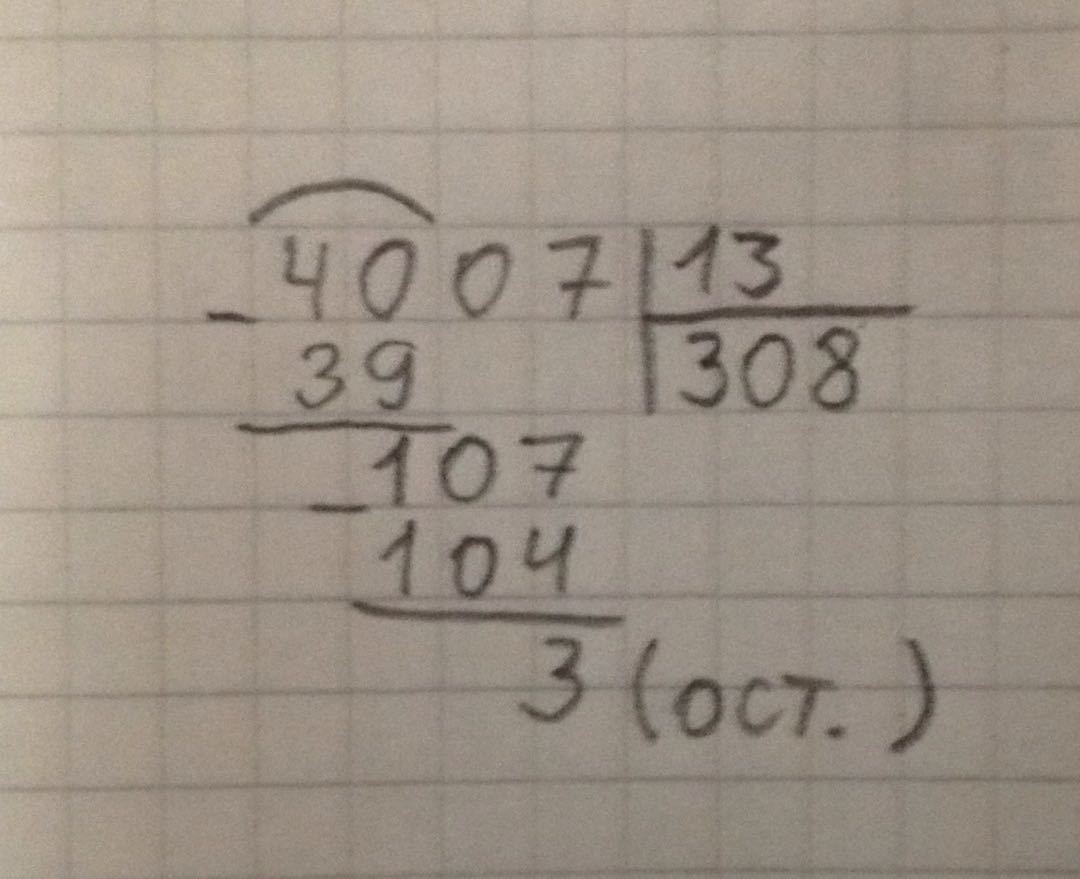 4007 | 13
- 39 | 308
107
- 104
3 (ост.)